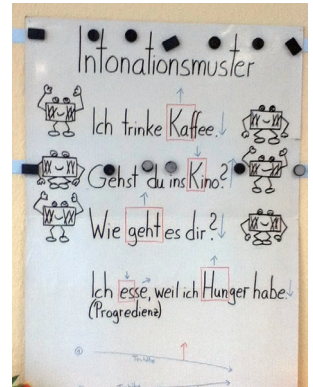 Intonationsmuster
Ich trinke Kaffee.
Gehst du ins Kino?
Wie geht es dir?
Ich esse, weil ich Hunger habe.
(Progredienz)